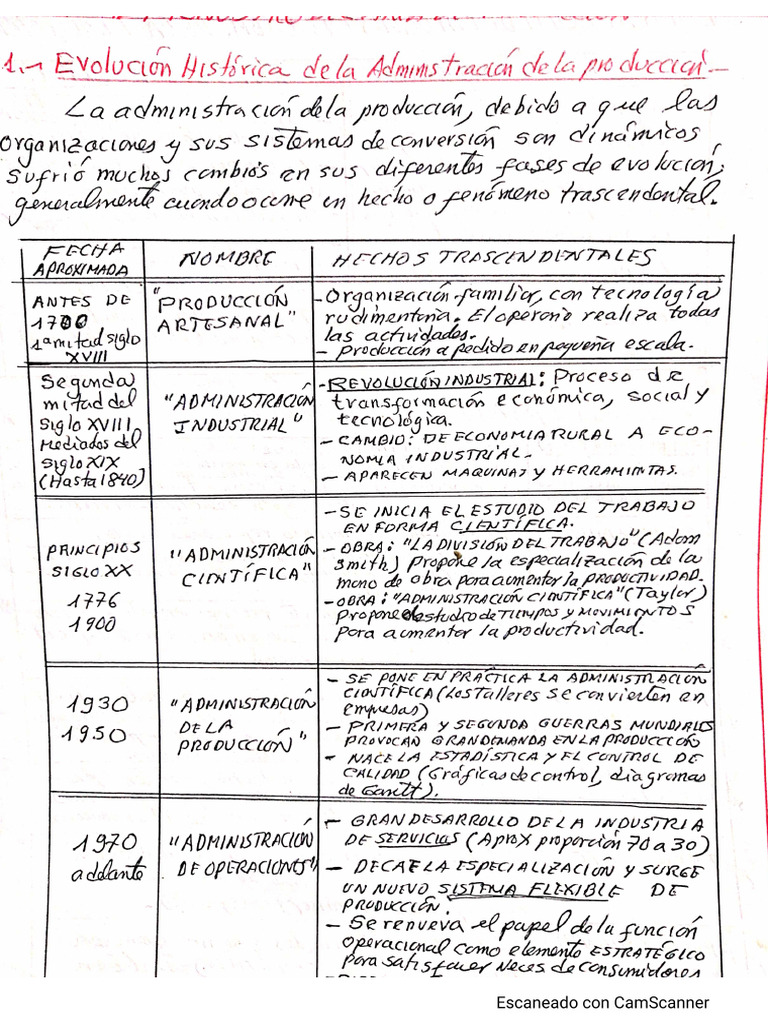 1.- Evolución Histórica de la Administración de la producción.-
La administración de la producción, debido a que las
organizaciones y sus sistemas de conversión son dinámicos,
sufrió muchos cambios en sus diferentes fases de evolución;
generalmente cuando ocurre un hecho o fenómeno trascendental.
FECHA APROXIMADA
NOMBRE
HECHOS TRASCENDENTALES
ANTES DE
1700
1a mitad siglo
XVIII
"PRODUCCIÓN
ARTESANAL"
- Organización familiar, con tecnología
rudimentaria. El operario realiza todas
las actividades.
- Producción a pedido en pequeña escala.
Segunda
mitad del
siglo XVIII
Mediados del
siglo XIX
(Hasta 1840)
"ADMINISTRACIÓN
INDUSTRIAL"
- REVOLUCIÓN INDUSTRIAL: Proceso de
transformación económica, social y
tecnológica.
- CAMBIO: DE ECONOMIA RURAL A ECO-
NOMIA INDUSTRIAL.-
- APARECEN MAQUINAS Y HERRAMIENTAS.
PRINCIPIOS
SIGLO XX
1776
1900
"ADMINISTRACIÓN
CIENTÍFICA"
- SE INICIA EL ESTUDIO DEL TRABAJO
EN FORMA CIENTÍFICA.
- OBRA: "LA DIVISIÓN DEL TRABAJO" (Adam
Smith) Propone la especialización de la
mano de obra para aumentar la PRODUCTIVIDAD.
- OBRA: "ADMINISTRACIÓN CIENTÍFICA" (Taylor)
Propone estudio de TIEMPOS Y MOVIMIENTOS
para aumentar la productividad.
1930
1950
"ADMINISTRACIÓN
DE LA
PRODUCCIÓN"
- SE PONE EN PRÁCTICA LA ADMINISTRACION
CIENTÍFICA (Los talleres se convierten en
empresas)
- PRIMERA Y SEGUNDA GUERRAS MUNDIALES
PROVOCAN GRAN DEMANDA EN LA PRODUCCIÓN
- NACE LA ESTADÍSTICA Y EL CONTROL DE
CALIDAD (Gráficas de control, diagramas
de Gantt).
1970
adelante
"ADMINISTRACIÓN
DE OPERACIONES"
- GRAN DESARROLLO DE LA INDUSTRIA
DE SERVICIOS (Aprox proporción 70 a 30)
- DECAE LA ESPECIALIZACIÓN Y SURGE
UN NUEVO SISTEMA FLEXIBLE DE
PRODUCCIÓN.
- Se renueva el papel de la función
operacional como elemento ESTRATÉGICO
para satisfacer neces de consumidores
Escaneado con CamScanner